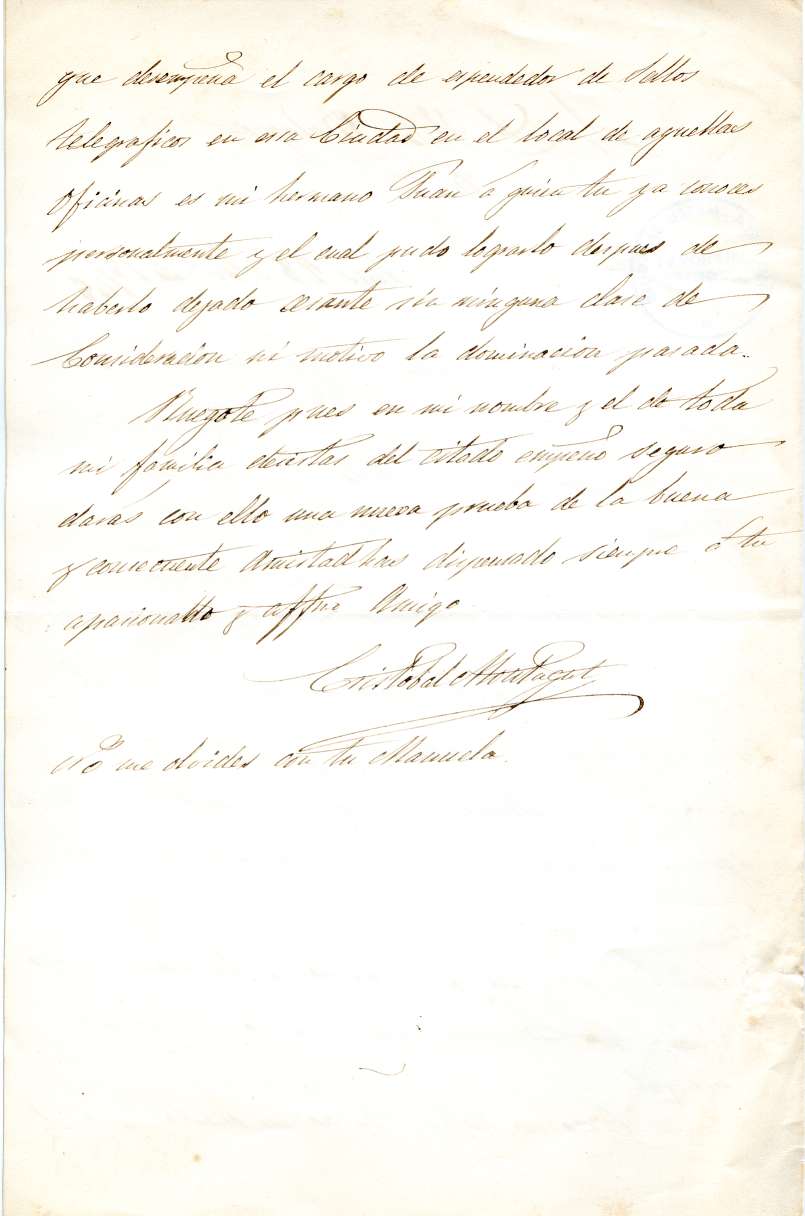 que desempeña el cargo de espendedor de Sellos
telegraficos en esa Ciudad en el local de aquellas
Oficinas es mi hermano Juan á quien tu ya conoces
personalmente y el cual pudo lograrlo despues de
haberlo dejado cesante sin ninguna clase de
Consideracion ni motivo la dominacion pasada.
Ruegote pues en mi nombre y el de toda
mi familia desistas del citado empeño seguro
darás con ello una nueva prueba de la buena
y consecuente Amistad has dispensado siempre á tu
apasionado y affmo Amigo
Cristobal
No me olvides con tu Manuela.